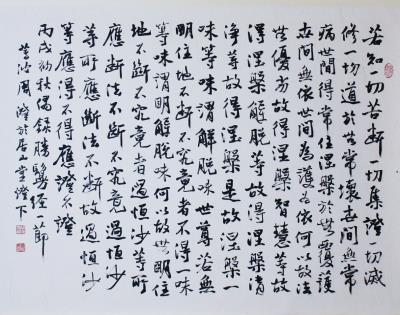 若知一切苦斷一切集證一切滅
修一切道於無常壞世間無常
病世間得常住涅槃於無覆護
世間無依世間為護為依何以故法
無優劣故得涅槃智慧等故
得涅槃解脫等故得涅槃清
淨等故得涅槃是故涅槃一
味等味謂解脫味世尊若無
明住地不斷不究竟者不得一味
等味謂明解脫味何以故無明住
地不斷不究竟者過恒沙等所
應斷法不斷不究竟過恒沙
等所應斷法不斷故過恒沙
等應得不得應證不證
丙戌初秋偶錄勝鬘經一節
風澄於居山堂燈下